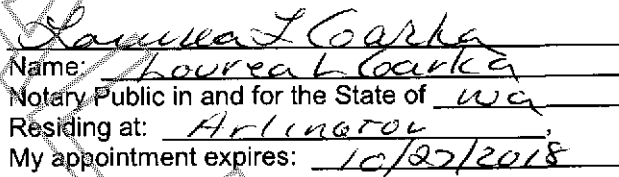 Lourea L Coarka
Name: Lourea L Coarka
Notary Public in and for the State of Wa
Residing at: Arlington,
My appointment expires: 10/27/2018